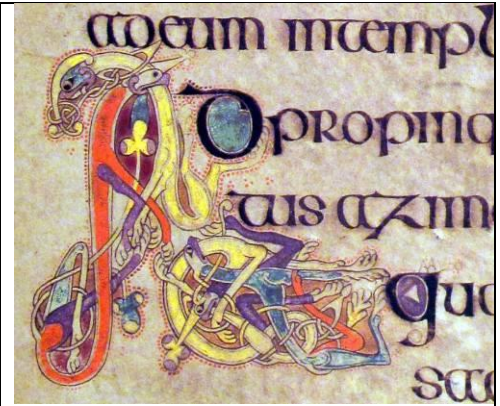 adeum intempl
Adpropinq
tus azim
qu
sa